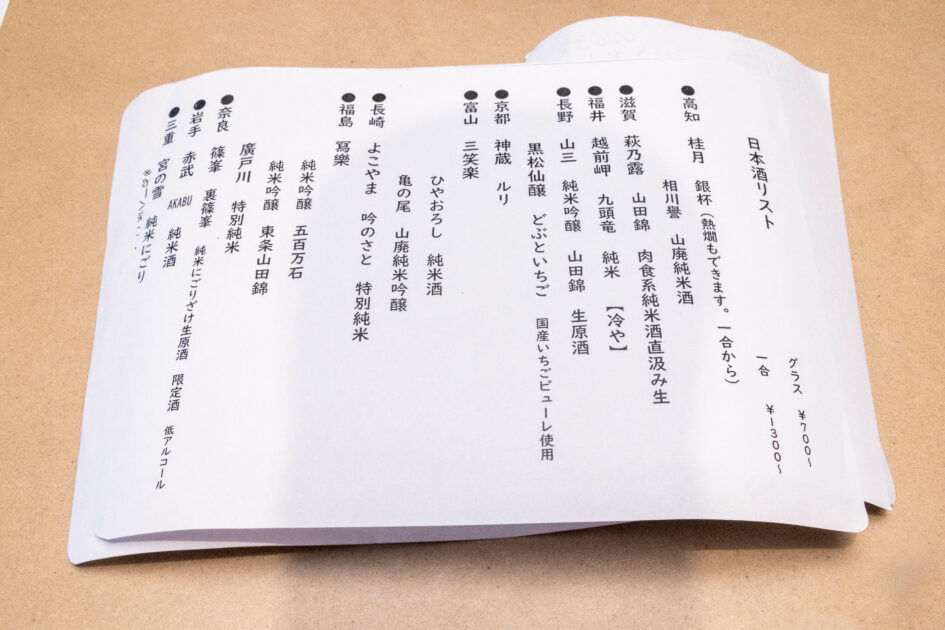 グラス ¥700〜
日本酒リスト 一合 ¥1300〜
●高知 桂月 銀杯（熱燗もできます。一合から）
相川譽 山廃純米酒
●滋賀 萩乃露 山田錦 肉食系純米酒直汲み生
●福井 越前岬 九頭竜 純米 【冷や】
●長野 山三 純米吟醸 山田錦 生原酒
黒松仙醸 どぶといちご 国産いちごピューレ使用
●京都 神蔵 ルリ
●富山 三笑楽
ひやおろし 純米酒
亀の尾 山廃純米吟醸
●長崎 よこやま 吟のさと 特別純米
●福島 冩樂
純米吟醸 五百万石
純米吟醸 東条山田錦
廣戸川 特別純米
●奈良 篠峯 裏篠峯 純米にごりざけ生原酒 限定酒 低アルコール
●岩手 赤武 AKABU 純米酒
●三重 宮の雪 純米にごり